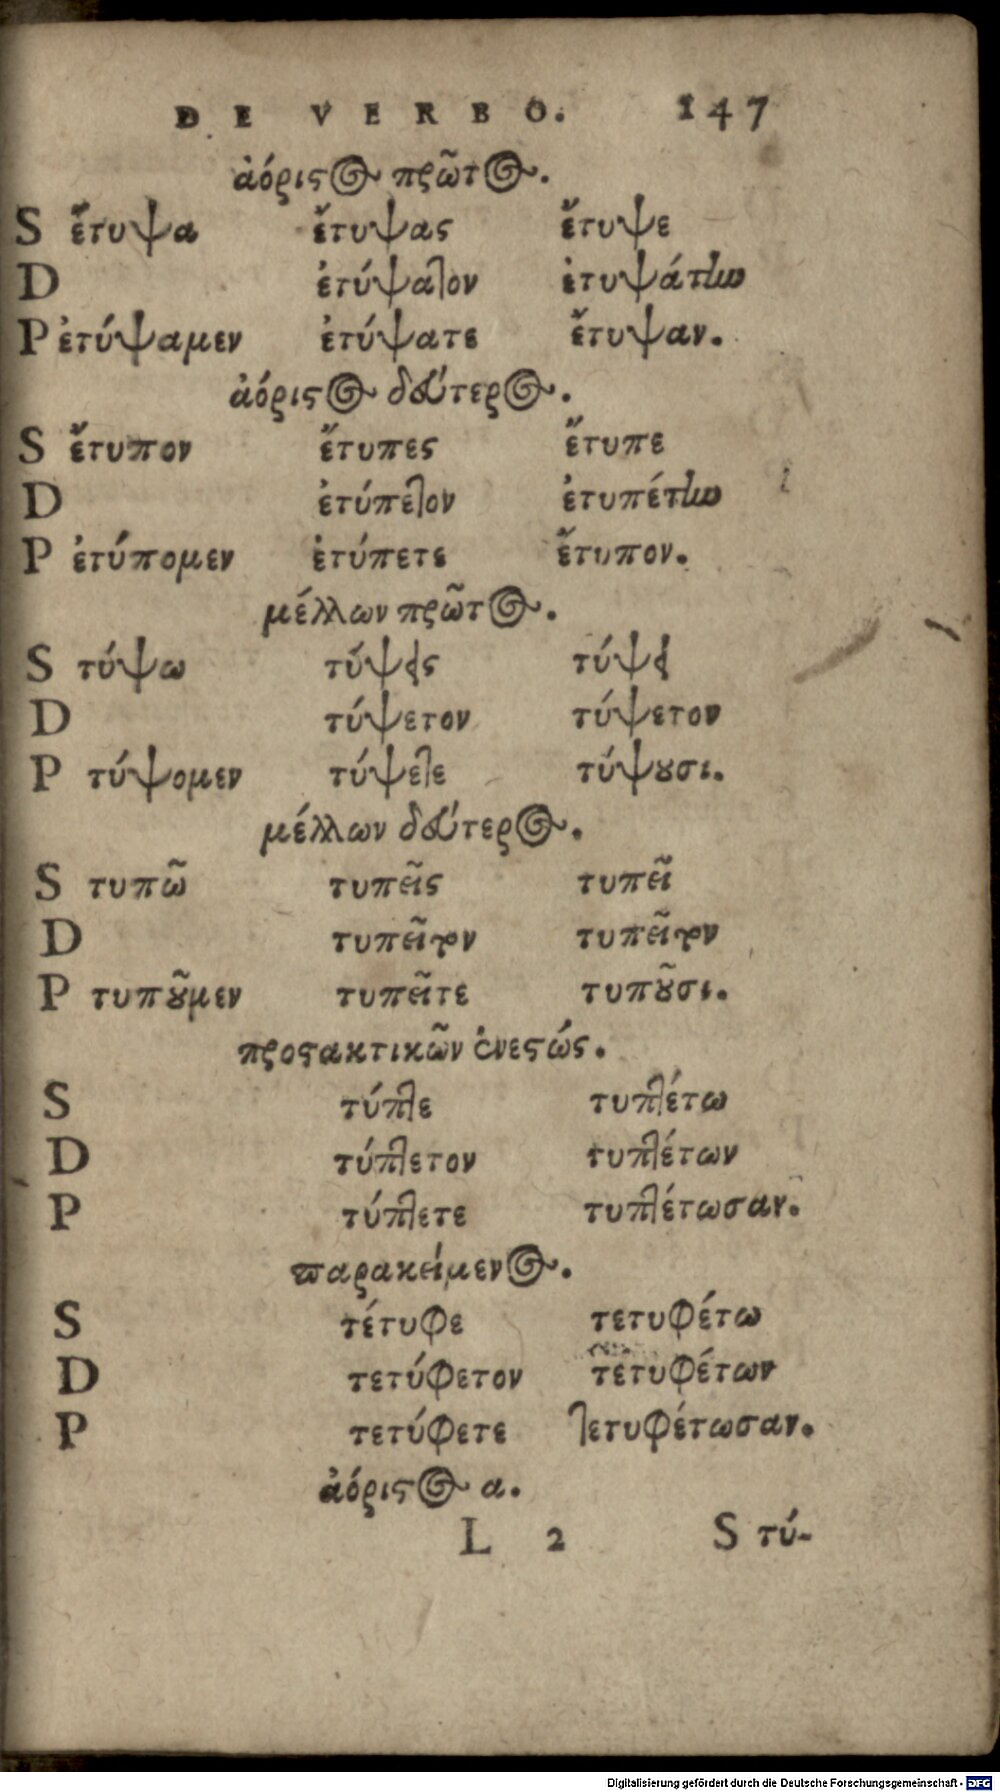 DE VERBO. 147
ἀόριστος πρῶτος.
S ἔτυψα ἔτυψας ἔτυψε
D ἐτύψατον ἐτυψάτην
P ἐτύψαμεν ἐτύψατε ἔτυψαν.
ἀόριστος δεύτερος.
S ἔτυπον ἔτυπες ἔτυπε
D ἐτύπετον ἐτυπέτην
P ἐτύπομεν ἐτύπετε ἔτυπον.
μέλλων πρῶτος.
S τύψω τύψεις τύψει
D τύψετον τύψετον
P τύψομεν τύψετε τύψουσι.
μέλλων δεύτερος.
S τυπῶ τυπεῖς τυπεῖ
D τυπεῖτον τυπεῖτον
P τυποῦμεν τυπεῖτε τυποῦσι.
προστακτικῶν ἐνεστώς.
S τύπτε τυπτέτω
D τύπτετον τυπτέτων
P τύπτετε τυπτέτωσαν.
παρακείμενος.
S τέτυφε τετυφέτω
D τετύφετον τετυφέτων
P τετύφετε τετυφέτωσαν.
ἀόριστος α.
L 2 S τύ-
Digitalisierung gefördert durch die Deutsche Forschungsgemeinschaft - DFG